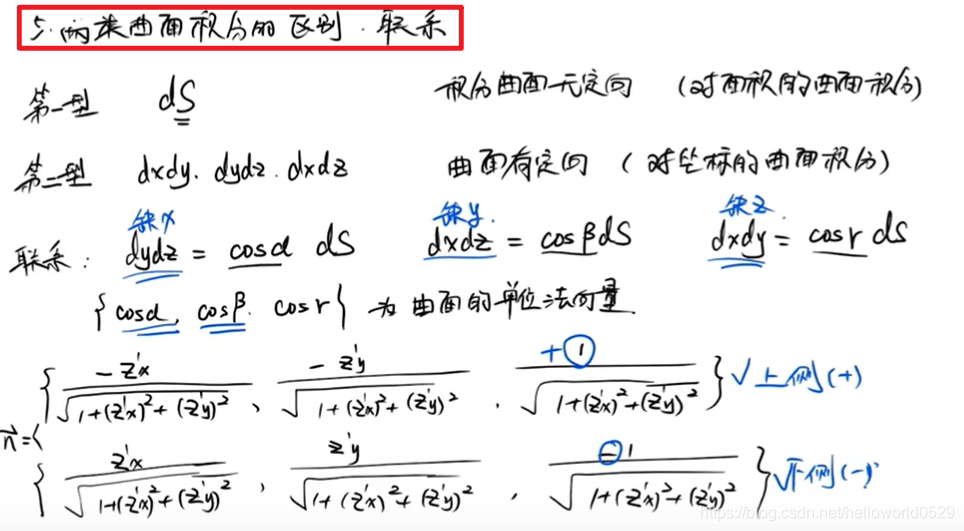 5. 两类曲面积分的区别.联系
第一型 dS 积分曲面无定向 (对面积的曲面积分)
第二型 dxdy. dydz. dxdz 曲面有定向 (对坐标的曲面积分)
缺x 缺y. 缺z.
联系: dydz = cosα dS dxdz = cosβdS dxdy = cosr dS
{cosα, cosβ. cosr} 为曲面的单位法向量.
{ -z'x / √(1+(z'x)²+(z'y)²) , -z'y / √(1+(z'x)²+(z'y)²) , +1 / √(1+(z'x)²+(z'y)²) } √上侧(+)
n⃗ = {
{ z'x / √(1+(z'x)²+(z'y)²) , z'y / √(1+(z'x)²+(z'y)²) , -1 / √(1+(z'x)²+(z'y)²) } √下侧(-)
https://blog.csdn.net/helloworld0529